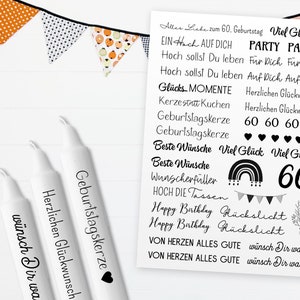 Alles Liebe zum 60. Geburtstag Viel Glü
EIN Hoch AUF DICH PARTY PA
Hoch sollst Du leben Für Dich Für
Hoch sollst Du leben Auf Dich Auf
Glücks MOMENTE Herzlichen Glück
Kerze statt Kuchen Herzlichen Glück
Geburtstagskerze 60 60 60 6
Geburtstagskerze
Beste Wünsche Viel Glück Viel Gl
Beste Wünsche
Wunscherfüller 60
HOCH DIE TASSEN
Happy Birthday Glückslicht
Happy Birthday Glückslicht
VON HERZEN ALLES GUTE wünsch Dir wa
VON HERZEN ALLES GUTE wünsch Dir wa
wünsch Dir wa
Herzlichen Glückwunsch
Geburtstagskerze